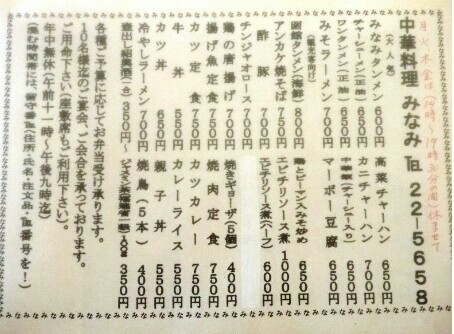 月火木金は(14時~17時30分の間)休ませて
中華料理 みなみ ℡ 22-5658
(大人気)
みなみタンメン 600円
チャーシューメン(正油) 650円
ワンタンメン(正油) 650円
みそラーメン 700円
(観光客向け)
函館タンメン(海鮮) 800円
アンカケ焼そば 750円
酢豚 700円
チンジャオロース 700円
高菜チャーハン 650円
カニチャーハン 700円
中華飯(チャーシュー入り) 650円
マーボー豆腐 650円
鶏とピーナツみそ炒め 650円
エビチリソース煮 1000円
エビチリソース煮(ハーフ) 600円
鶏の唐揚げ 700円
揚げ魚定食 750円
カツ定食 750円
牛丼 550円
カツ丼 650円
冷やしラーメン 700円
焼きギョーザ(5個) 400円
焼肉定食 750円
カツカレー 750円
カレーライス 550円
親子丼 550円
焼鳥(5本) 400円
350円~
350円
各種ご予算に応じてお弁当受け承ります。
10名様迄のご宴会、ご会合を承っております。
ご用命下さい(座敷席もご利用下さい)。
年中無休(午前十一時~午後九時迄)
(混む時間帯には、留守番℡(住所・氏名・注文品・℡番号を!)